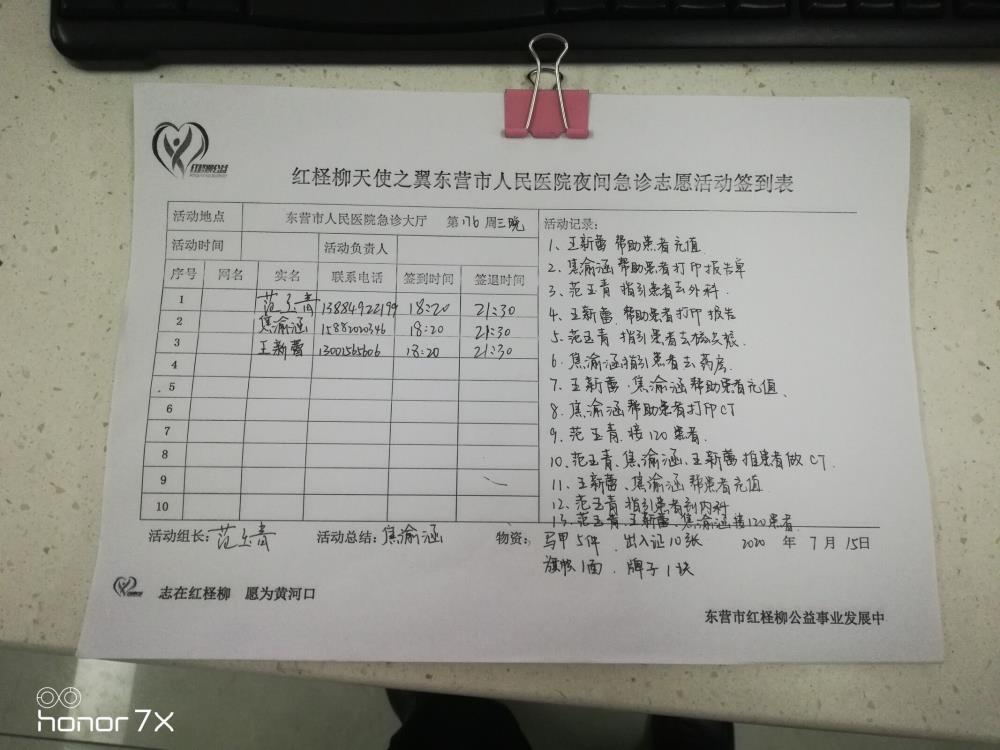 红柽柳公益
红柽柳天使之翼东营市人民医院夜间急诊志愿活动签到表
活动地点 东营市人民医院急诊大厅 第176周三晚
活动时间 活动负责人
序号 网名 实名 联系电话 签到时间 签退时间
1 范玉青 13884922199 18:20 21:30
2 焦渝涵 15882020346 18:20 21:30
3 王新蕾 13001565606 18:20 21:30
4
5
6
7
8
9
10
活动记录:
1、王新蕾 帮助患者充值
2、焦渝涵 帮助患者打印报告单
3、范玉青 指引患者去外科.
4、王新蕾 帮助患者打印报告
5、范玉青 指引患者去
6、焦渝涵指引患者去药房.
7、王新蕾、焦渝涵帮助患者充值、
8、焦渝涵帮助患者打印CT
9、范玉青、接120患者.
10、范玉青、焦渝涵、王新蕾推患者做CT.
11、王新蕾、焦渝涵帮患者充值
12、范玉青 指引患者到内科
13、范玉青、王新蕾、焦渝涵接120患者
活动组长:范玉青 活动总结:焦渝涵 物资: 马甲5件、出入证10张 2020 年 7月 15日
旗帜1面、牌子1块
志在红柽柳 愿为黄河口
东营市红柽柳公益事业发展中
honor 7X